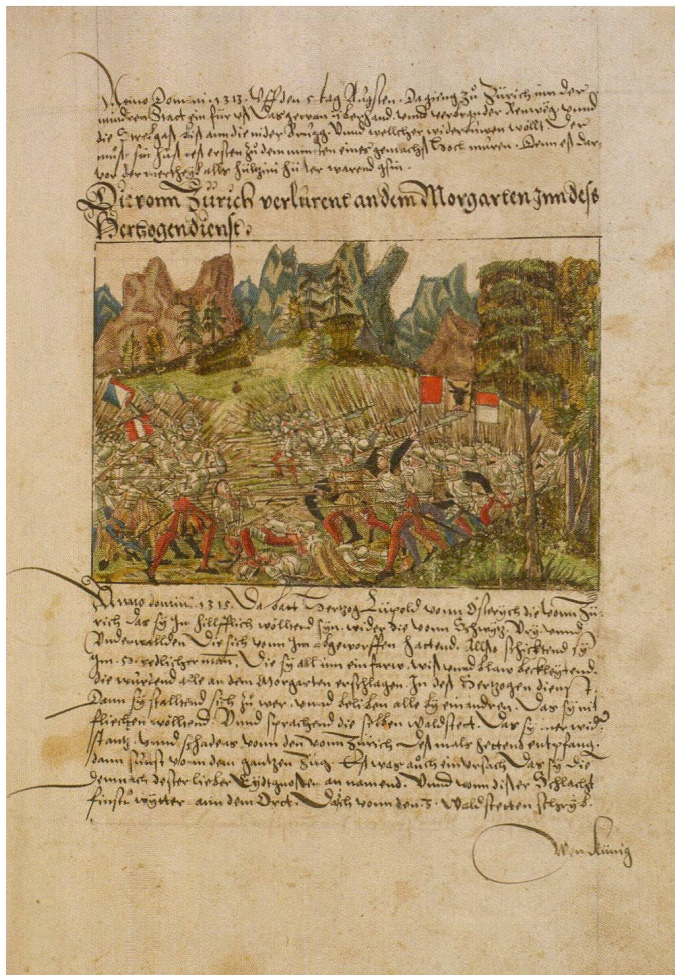 Anno Domini . 1313 . Vff den 5 tag Augsten . Da gieng zů Zürich inn der
mindren Statt ein für vß Das gar vast überhand . vnnd verbran der Rennwäg vnnd
die Strelgaß biß ann die nider Brugg. Vnnd wellcher widerbuwen wöllt Der
můst sin huß des ersten zů dem minsten eines gemachs hoch muren . Denn es dar-
vor der mertheyl alls hültzini hüser warend gsin .
Die vonn Zürich verlurent an dem Morgarten Inn dess
Hertzogen dienst .
Anno domini . 1315 . Da batt Hertzog Lüpold vonn Österych die vonn Zü-
rich Das sy Im hillfflich wölltend syn . wider die vonn Schwytz . Vry vnnd
Vnderwallden Die sich vonn Im abgeworffen hattend . Allso schicktend sy
Im . 50 . redlicher man . Die sy all inn ein farw . wiß vnnd blaw becleytend .
Die wurdend alle an dem Morgarten erschlagen . In des Hertzogen dienst .
Dann sy stalltend sich zů wer . vnnd beliben alle by einandren . Das sy nit
fliechen wölltend . Vnnd sprachend die selben waldstett . Das sy mer wider
stantz . vnnd schadens vonn den vonn Zürich desmals hettend entpfangen .
dann sunst vonn dem gantzen züg . Es was auch ein vrsach Das sy die
demnach dester lieber Eydtgnossen an namend . Vnnd vonn diser Schlacht
findstu wytter . ann dem Ort . Da ich vonn den 3 . Waldstetten schryb .